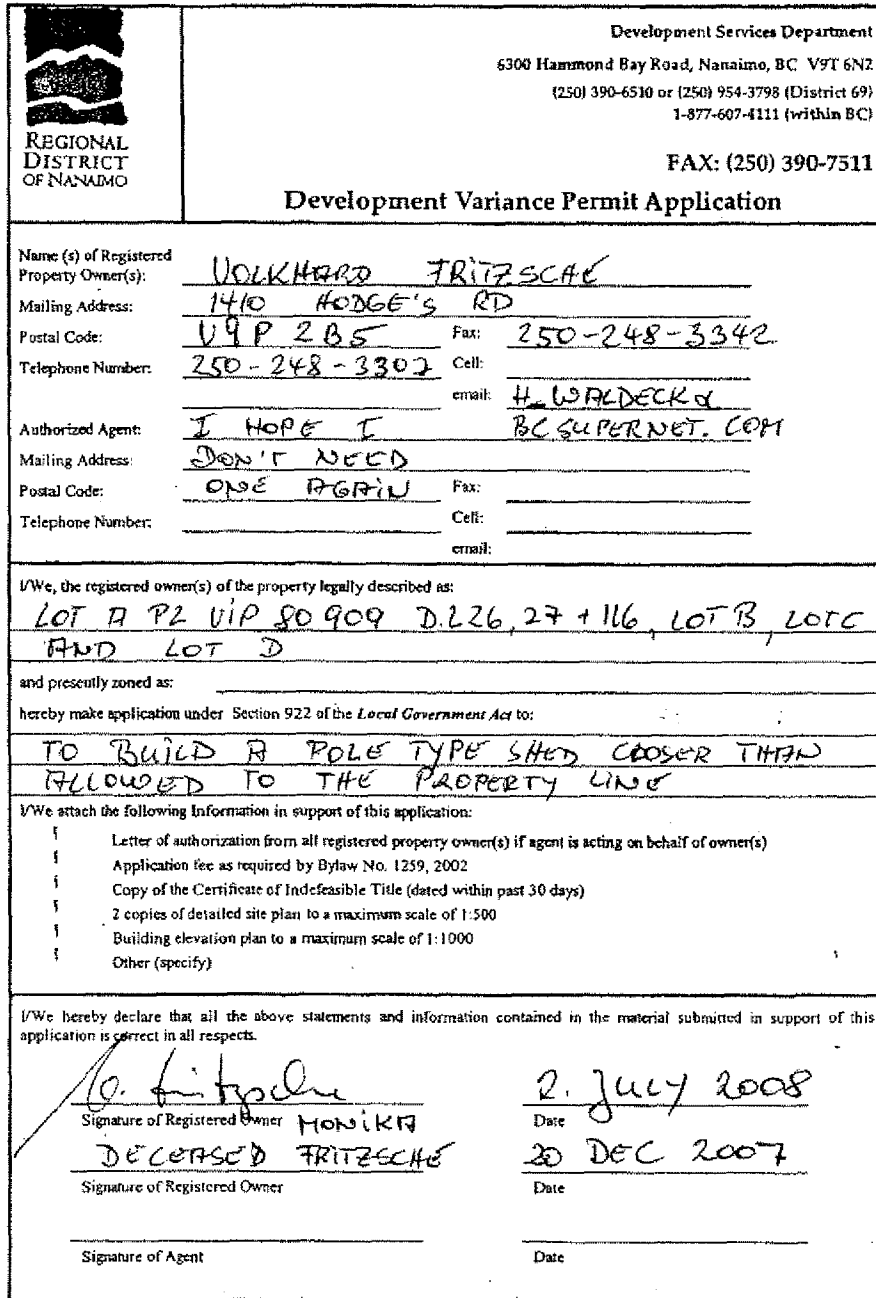 Development Services Department
6300 Hammond Bay Road, Nanaimo, BC V9T 6N2
(250) 390-6510 or (250) 954-3798 (District 69)
1-877-607-4111 (within BC)
REGIONAL
DISTRICT
OF NANAIMO
FAX: (250) 390-7511
Development Variance Permit Application
Name (s) of Registered
Property Owner(s): VOLKHARD FRITZSCHE
Mailing Address: 1410 HODGE'S RD
Postal Code: V9P 2B5 Fax: 250-248-3342
Telephone Number: 250-248-3302 Cell:
email: H_WALDECK@
Authorized Agent: I HOPE I BCSUPERNET.COM
Mailing Address: DON'T NEED
Postal Code: ONE AGAIN Fax:
Telephone Number: Cell:
email:
I/We, the registered owner(s) of the property legally described as:
LOT A PL VIP 80909 D.L 26, 27 + 116, LOT B, LOT C
AND LOT D
and presently zoned as:
hereby make application under Section 922 of the Local Government Act to:
TO BUILD A POLE TYPE SHED CLOSER THAN
ALLOWED TO THE PROPERTY LINE
I/We attach the following Information in support of this application:
Letter of authorization from all registered property owner(s) if agent is acting on behalf of owner(s)
Application fee as required by Bylaw No. 1259, 2002
Copy of the Certificate of Indefeasible Title (dated within past 30 days)
2 copies of detailed site plan to a maximum scale of 1:500
Building elevation plan to a maximum scale of 1:1000
Other (specify)
I/We hereby declare that all the above statements and information contained in the material submitted in support of this
application is correct in all respects.
V. Fritzsche 2. JULY 2008
Signature of Registered Owner MONIKA Date
DECEASED FRITZSCHE 20 DEC 2007
Signature of Registered Owner Date
Signature of Agent Date